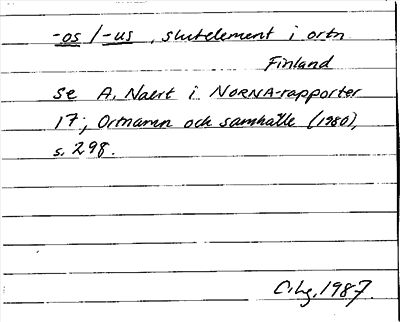 -os / -us, slutelement i ortn
Finland
se A. Naert i NORNA-rapporter
17; Ortnamn och samhälle (1980),
s. 298.
1987.